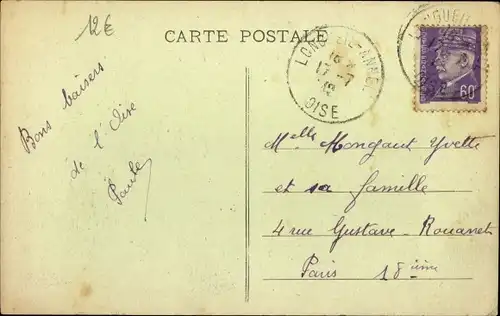 12€
CARTE POSTALE
LONGUEIL-ANNEL
16
17 -7
OISE
LONGUEIL
60
Bons baisers
de l'Oise
Paule
Melle Mongaut Yvette
et sa famille
4 rue Gustave-Rouanet
Paris 18ième